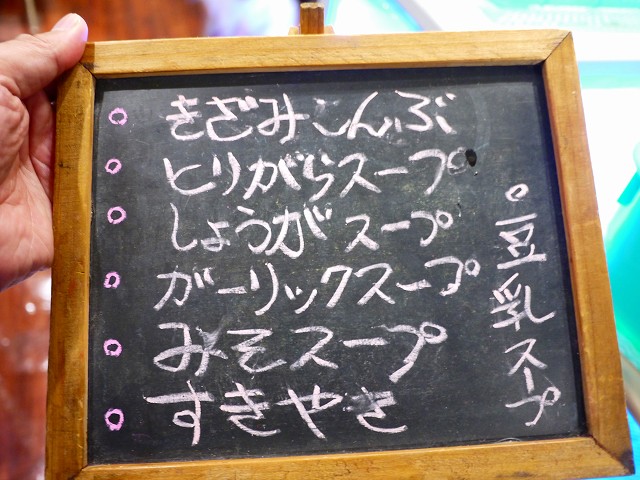 きざみこんぶ
トリがらスープ
しょうがスープ
ガーリックスープ
みそスープ
すきやき
豆乳スープ